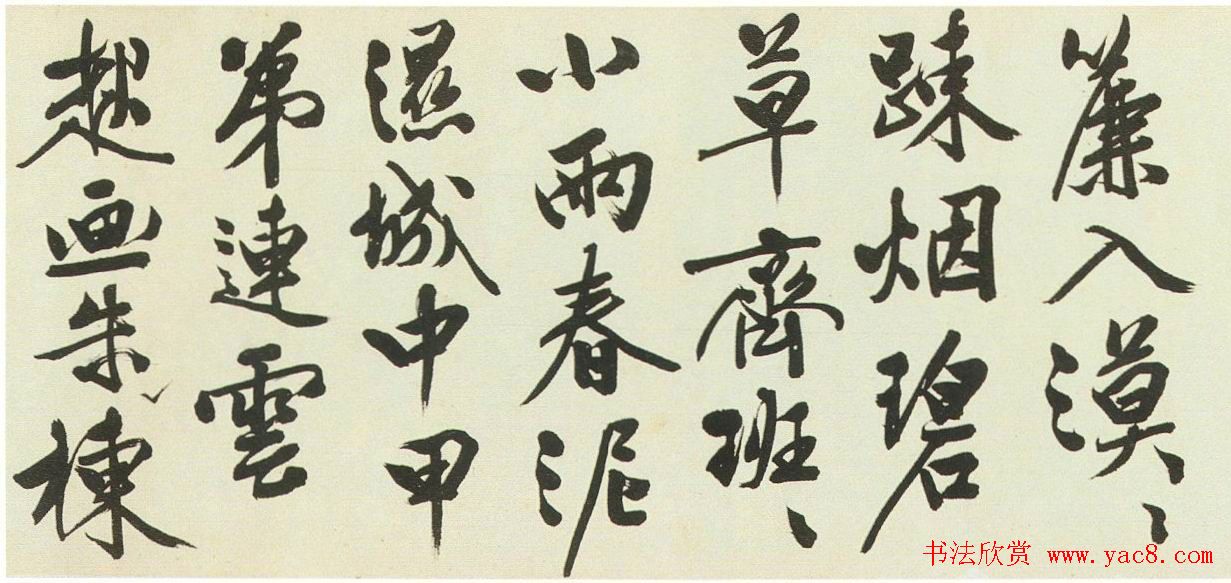 簾入漠〻
踈烟碧
草齊班〻
小雨春泥
濕城中甲
第連雲
画朱棟
书法欣赏 www.yac8.com